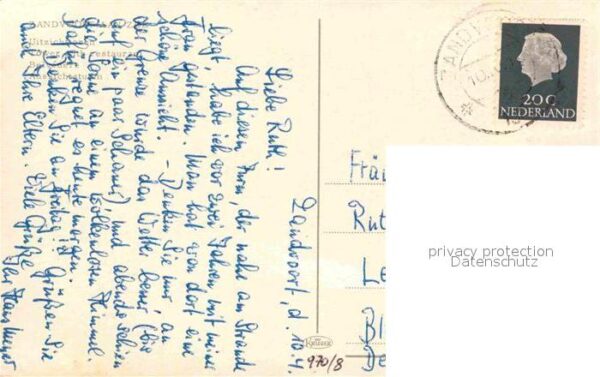 ZANDVOORT
Uitzichttoren
Zandvoort, d. 10.4.
Liebe Ruth!
Auf diesem Turm, der nahe am Strande
liegt, habe ich vor zwei Jahren mit meiner
Frau gestanden. Man hat von dort eine
schöne Aussicht. – Denken Sie nur an
der Grenze wurde das Wetter besser (bis
auf ein paar Schauer) und abends schien
die Sonne an einem wolkenlosen Himmel.
regnet es heute morgen.
Denken Sie an Freitag! Grüßen Sie
auch Ihre Eltern. Viele Grüße
Ihr Hans Meyer
20 C
NEDERLAND
Fräu
Rut
Le
Bl
De
privacy protection
Datenschutz
970/8